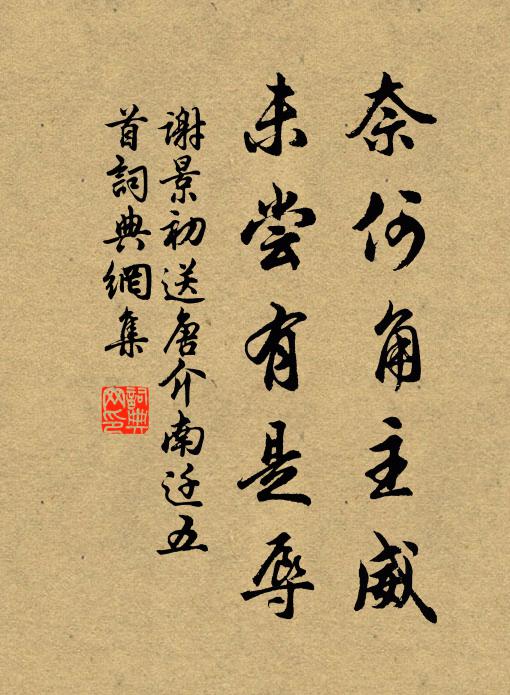 奈何角主威
未尝有是辱
谢景初送唐介南迁五
首詞典網集
詞典
网印